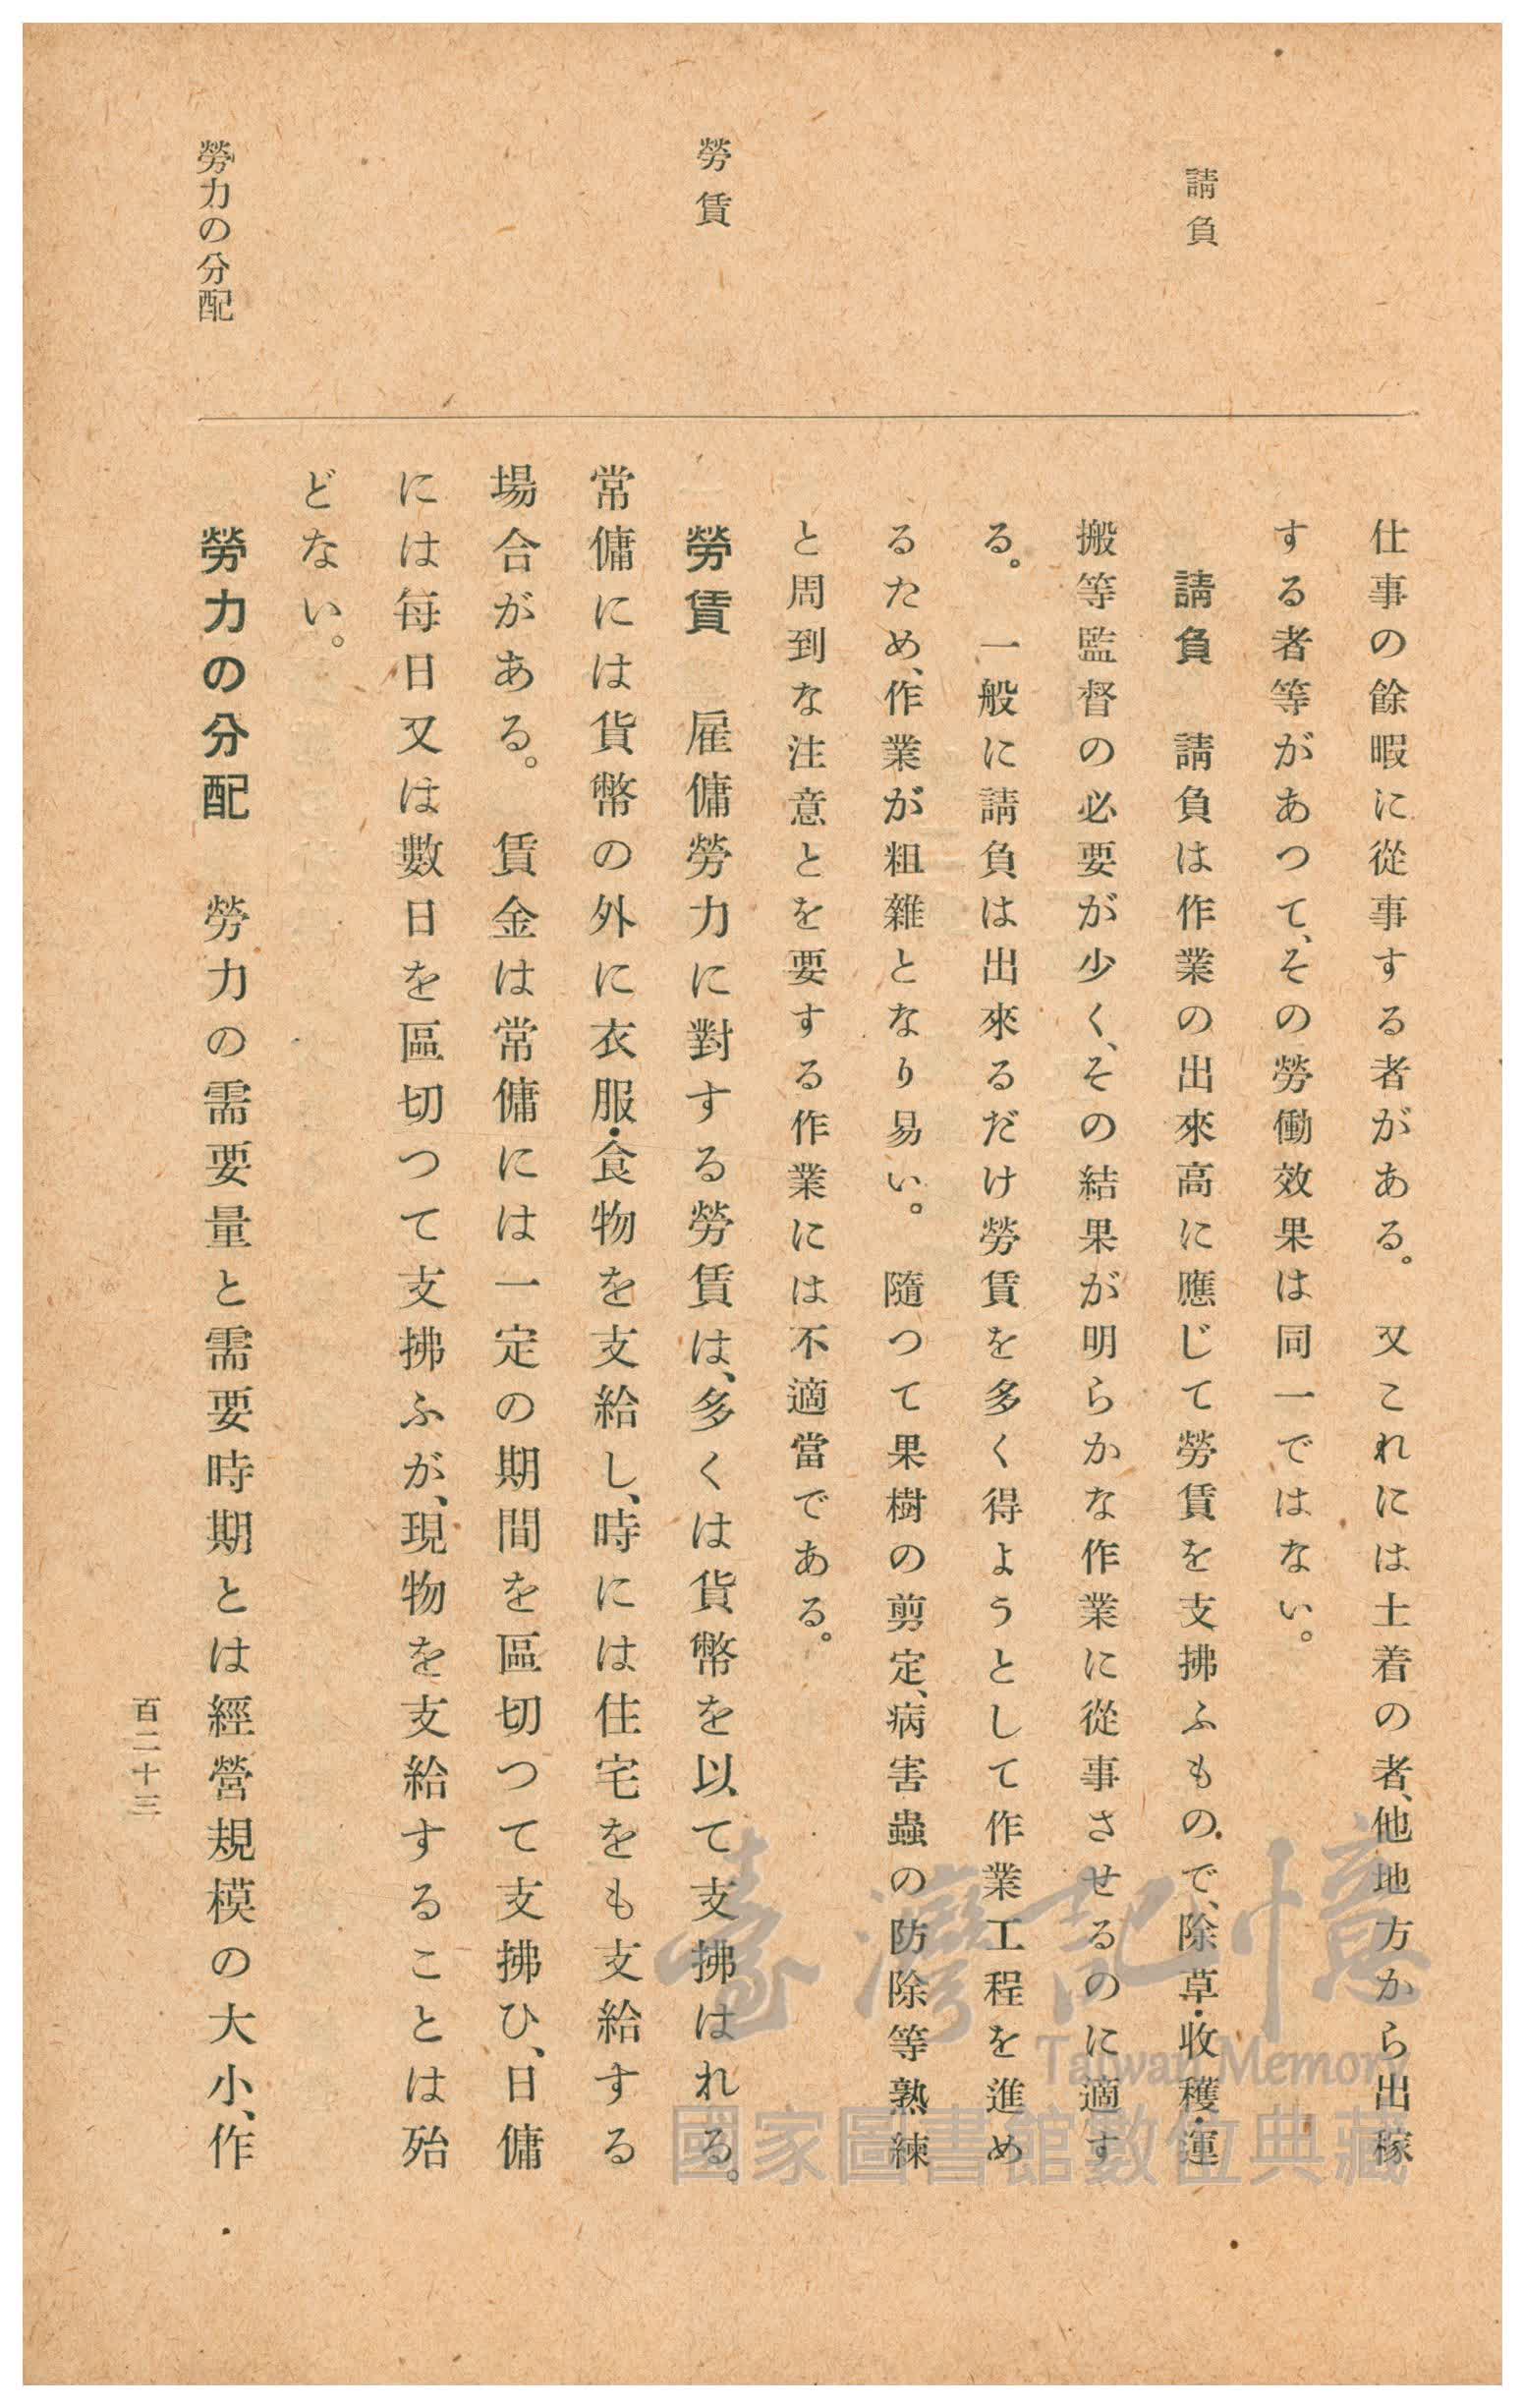 請負
勞賃
勞力の分配
仕事の餘暇に從事する者がある。　又これには土着の者、他地方から出稼
する者等があつて、その勞働效果は同一ではない。
請負　請負は作業の出來高に應じて勞賃を支拂ふもので、除草・收穫・運
搬等監督の必要が少く、その結果が明らかな作業に從事させるのに適す
る。　一般に請負は出來るだけ勞賃を多く得ようとして作業工程を進め
るため、作業が粗雜となり易い。　隨つて果樹の剪定、病害蟲の防除等熟練
と周到な注意とを要する作業には不適當である。
勞賃　雇傭勞力に對する勞賃は、多くは貨幣を以て支拂はれる。
常傭には貨幣の外に衣服・食物を支給し、時には住宅をも支給する
場合がある。　賃金は常傭には一定の期間を區切つて支拂ひ、日傭
には每日又は數日を區切つて支拂ふが、現物を支給することは殆
どない。
勞力の分配　勞力の需要量と需要時期とは經營規模の大小、作
百二十三
臺灣記憶
Taiwan Memory
國家圖書館數位典藏